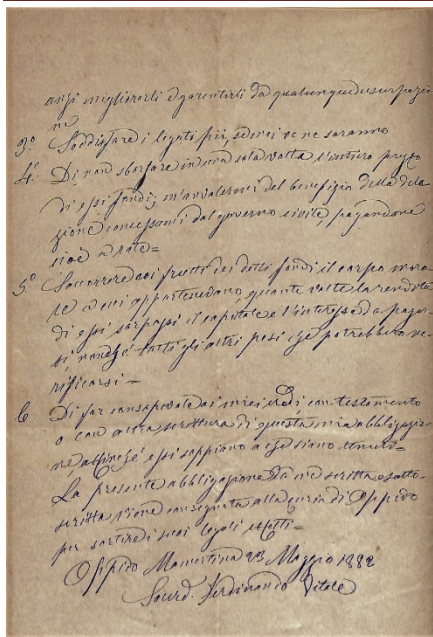 anzi migliorarli e garentirli da qualunque usurpazio
ne
3.º Soddisfare i legati pii, se vene saranno
4.º Di non sborsare in una sola volta l'intero prezzo
di essi fondi, m'avvalermi del benefizio della dila
zione concessami dal governo civile, pagandone
cioè a rate=
5.º Soccorrere coi frutti dei detti fondi il corpo mora
le a cui appartenevano, quante volte la rendita
di essi sorpassi il capitale e l'interesse da pagar
si, nonché tutti gli altri pesi che potrebbero ve
rificarsi=
6 Di far consapevole ai miei eredi, con testamento
o con altra scrittura di questa mia obbligazio
ne, affinché essi sappiano a che siano tenuti=
La presente obbligazione da me scritta e sotto-
scritta viene consegnata alla curia di Oppido
per sortire i suoi legali effetti=
Oppido Mamertina 23 Maggio 1882
Sacrd. Ferdinando Vitale